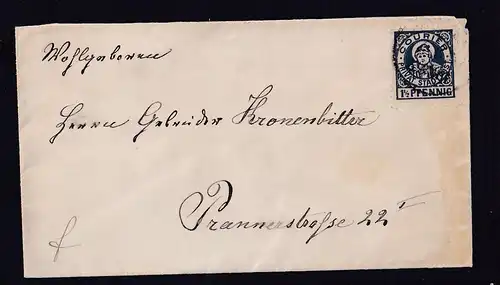 COURIER
PRIVAT STADTPOST
1½ PFENNIG
Wohlgeboren
Herren Gebrüder Kronenbitter
Prannerstrasse 22 I